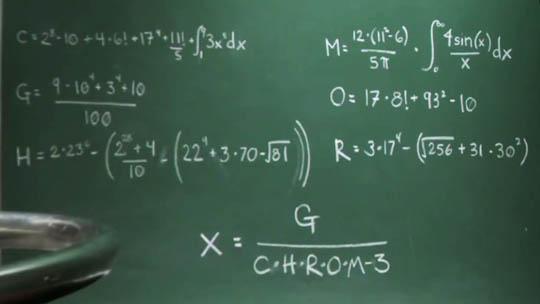 C = 2⁸·10 + 4·6! + 17⁴ + 11!/5 + ∫ 3x dx
M = 12·(11²-6)/5π · ∫₀^∞ 4sin(x)/x dx
G = 9·10⁴+3⁴+10 / 100
O = 17·8! + 93² - 10
H = 2·23 - (2²⁸+4/10 - (22⁴+3·70-√81))
R = 3·17⁴ - (√256 + 31·30²)
X = G / C·H·R·O·M-3